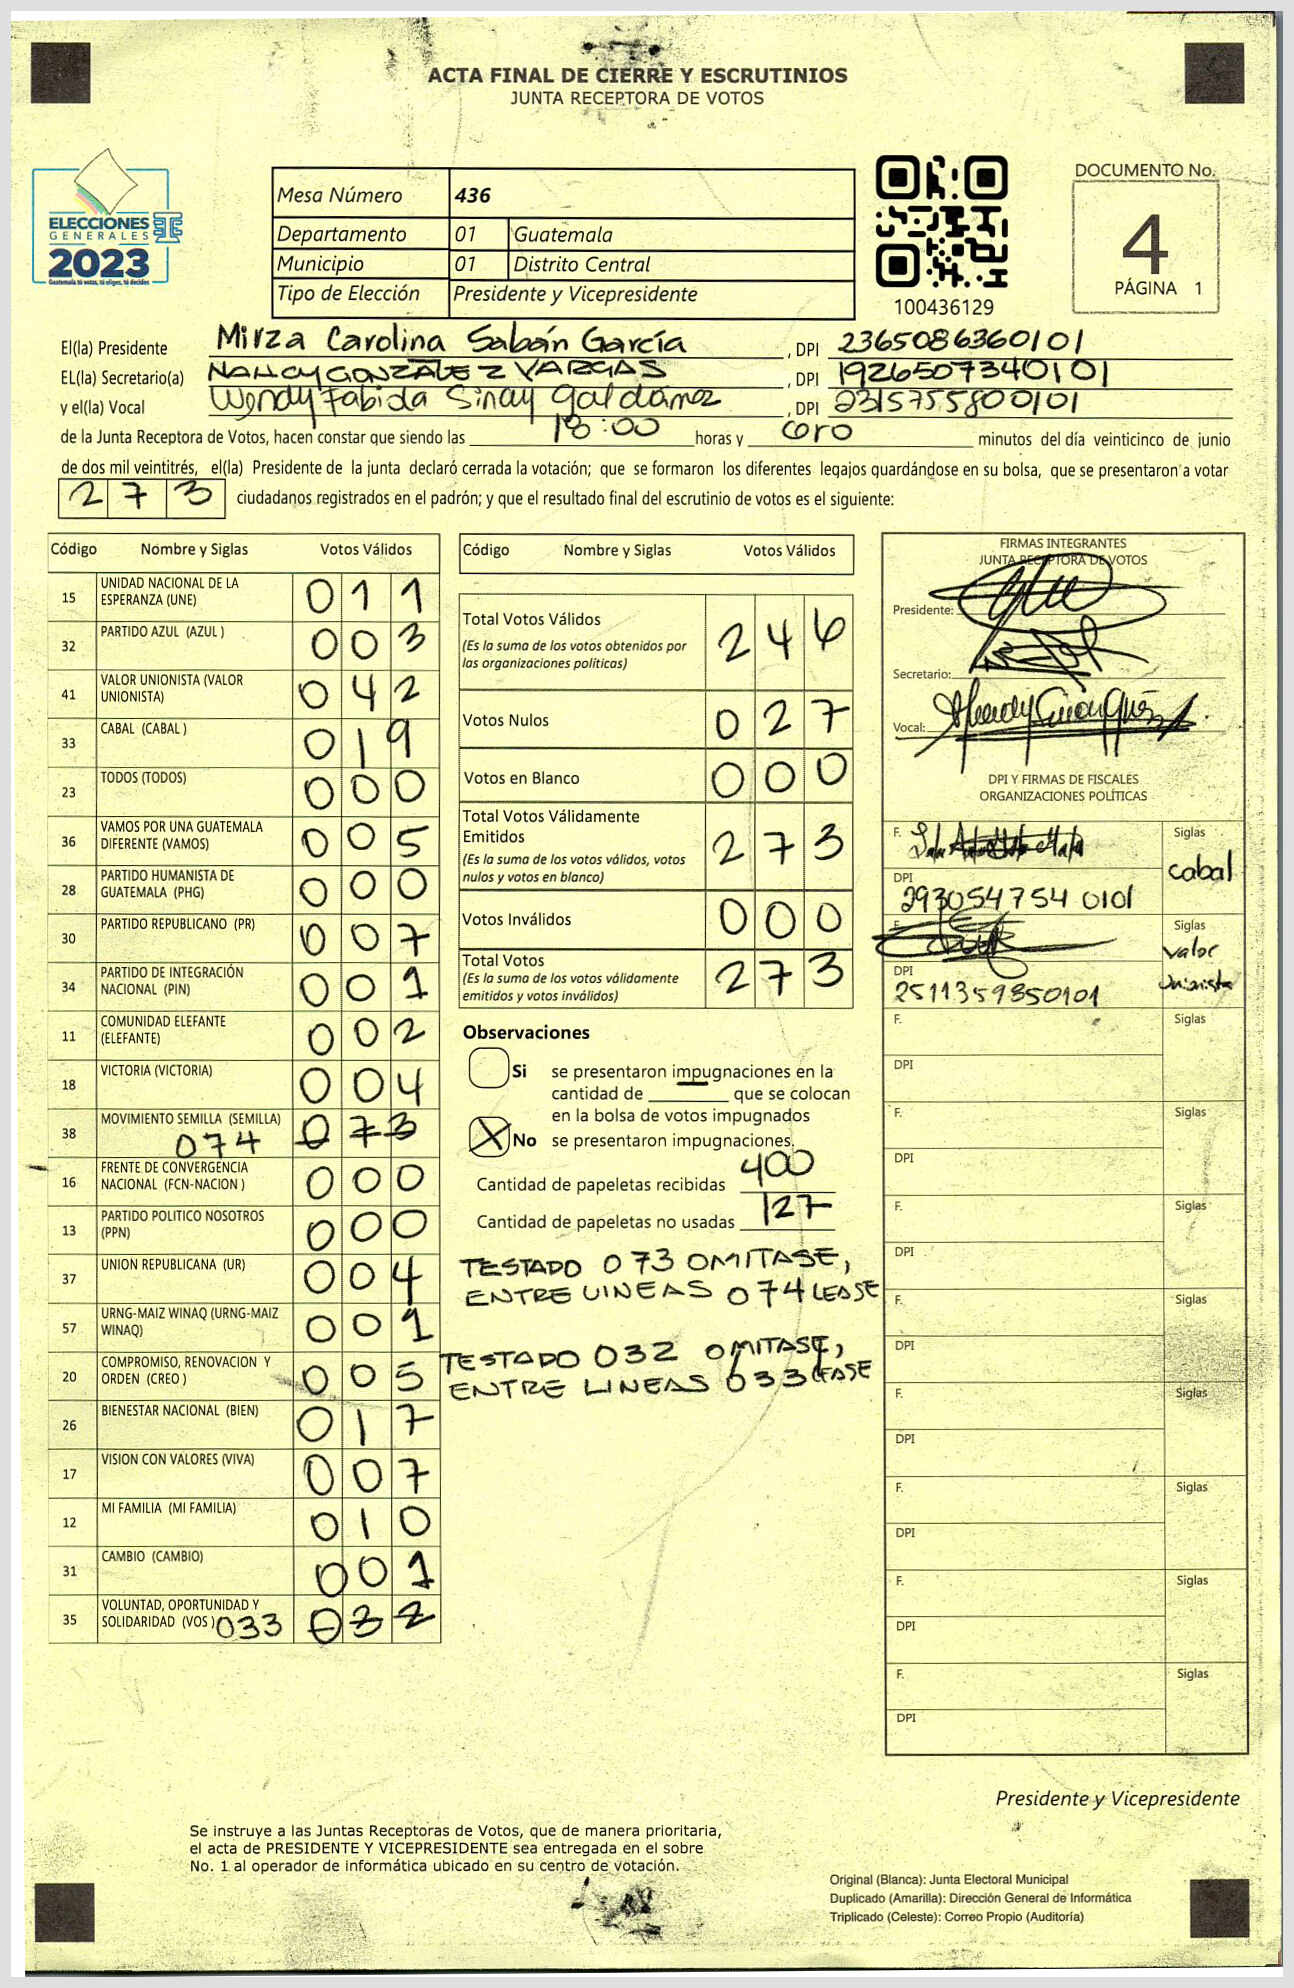 ACTA FINAL DE CIERRE Y ESCRUTINIOS
JUNTA RECEPTORA DE VOTOS
ELECCIONES
GENERALES
2023
Guatemala tú votas, tú eliges, tú decides
Mesa Número 436
Departamento 01 Guatemala
Municipio 01 Distrito Central
Tipo de Elección Presidente y Vicepresidente
100436129
DOCUMENTO No.
4
PÁGINA 1
El(la) Presidente Mirza Carolina Sabán García, DPI 2365086360101
EL(la) Secretario(a) NANCY GONZALEZ VARGAS, DPI 1926507340101
y el(la) Vocal Wendy Fabiola Sinay Galdámez, DPI 2315755800101
de la Junta Receptora de Votos, hacen constar que siendo las 18:00 horas y cero minutos del día veinticinco de junio
de dos mil veintitrés, el(la) Presidente de la junta declaró cerrada la votación; que se formaron los diferentes legajos guardándose en su bolsa, que se presentaron a votar
273 ciudadanos registrados en el padrón; y que el resultado final del escrutinio de votos es el siguiente:
Código Nombre y Siglas Votos Válidos
15 UNIDAD NACIONAL DE LA ESPERANZA (UNE) 011
32 PARTIDO AZUL (AZUL ) 003
41 VALOR UNIONISTA (VALOR UNIONISTA) 042
33 CABAL (CABAL ) 019
23 TODOS (TODOS) 000
36 VAMOS POR UNA GUATEMALA DIFERENTE (VAMOS) 005
28 PARTIDO HUMANISTA DE GUATEMALA (PHG) 000
30 PARTIDO REPUBLICANO (PR) 007
34 PARTIDO DE INTEGRACIÓN NACIONAL (PIN) 001
11 COMUNIDAD ELEFANTE (ELEFANTE) 002
18 VICTORIA (VICTORIA) 004
38 MOVIMIENTO SEMILLA (SEMILLA) 074 073
16 FRENTE DE CONVERGENCIA NACIONAL (FCN-NACION ) 000
13 PARTIDO POLITICO NOSOTROS (PPN) 000
37 UNION REPUBLICANA (UR) 004
57 URNG-MAIZ WINAQ (URNG-MAIZ WINAQ) 001
20 COMPROMISO, RENOVACION Y ORDEN (CREO ) 005
26 BIENESTAR NACIONAL (BIEN) 017
17 VISION CON VALORES (VIVA) 007
12 MI FAMILIA (MI FAMILIA) 010
31 CAMBIO (CAMBIO) 001
35 VOLUNTAD, OPORTUNIDAD Y SOLIDARIDAD (VOS ) 033 032
Código Nombre y Siglas Votos Válidos
Total Votos Válidos 246
(Es la suma de los votos obtenidos por
las organizaciones políticas)
Votos Nulos 027
Votos en Blanco 000
Total Votos Válidamente
Emitidos 273
(Es la suma de los votos válidos, votos
nulos y votos en blanco)
Votos Inválidos 000
Total Votos 273
(Es la suma de los votos válidamente
emitidos y votos inválidos)
Observaciones
Si se presentaron impugnaciones en la
cantidad de ________ que se colocan
en la bolsa de votos impugnados
X No se presentaron impugnaciones.
Cantidad de papeletas recibidas 400
Cantidad de papeletas no usadas 127
TESTADO 073 OMITASE,
ENTRE LINEAS 074 LEASE
TESTADO 032 OMITASE,
ENTRE LINEAS 033 LEASE
FIRMAS INTEGRANTES
JUNTA RECEPTORA DE VOTOS
Presidente:
Secretario:
Vocal:
DPI Y FIRMAS DE FISCALES
ORGANIZACIONES POLÍTICAS
F. Siglas
cabal
DPI
293054754 0101
F. Siglas
Valor
Unionista
DPI
2511359850101
F. Siglas
DPI
F. Siglas
DPI
F. Siglas
DPI
F. Siglas
DPI
F. Siglas
DPI
F. Siglas
DPI
F. Siglas
DPI
F. Siglas
DPI
Presidente y Vicepresidente
Se instruye a las Juntas Receptoras de Votos, que de manera prioritaria,
el acta de PRESIDENTE Y VICEPRESIDENTE sea entregada en el sobre
No. 1 al operador de informática ubicado en su centro de votación.
Original (Blanca): Junta Electoral Municipal
Duplicado (Amarilla): Dirección General de Informática
Triplicado (Celeste): Correo Propio (Auditoría)